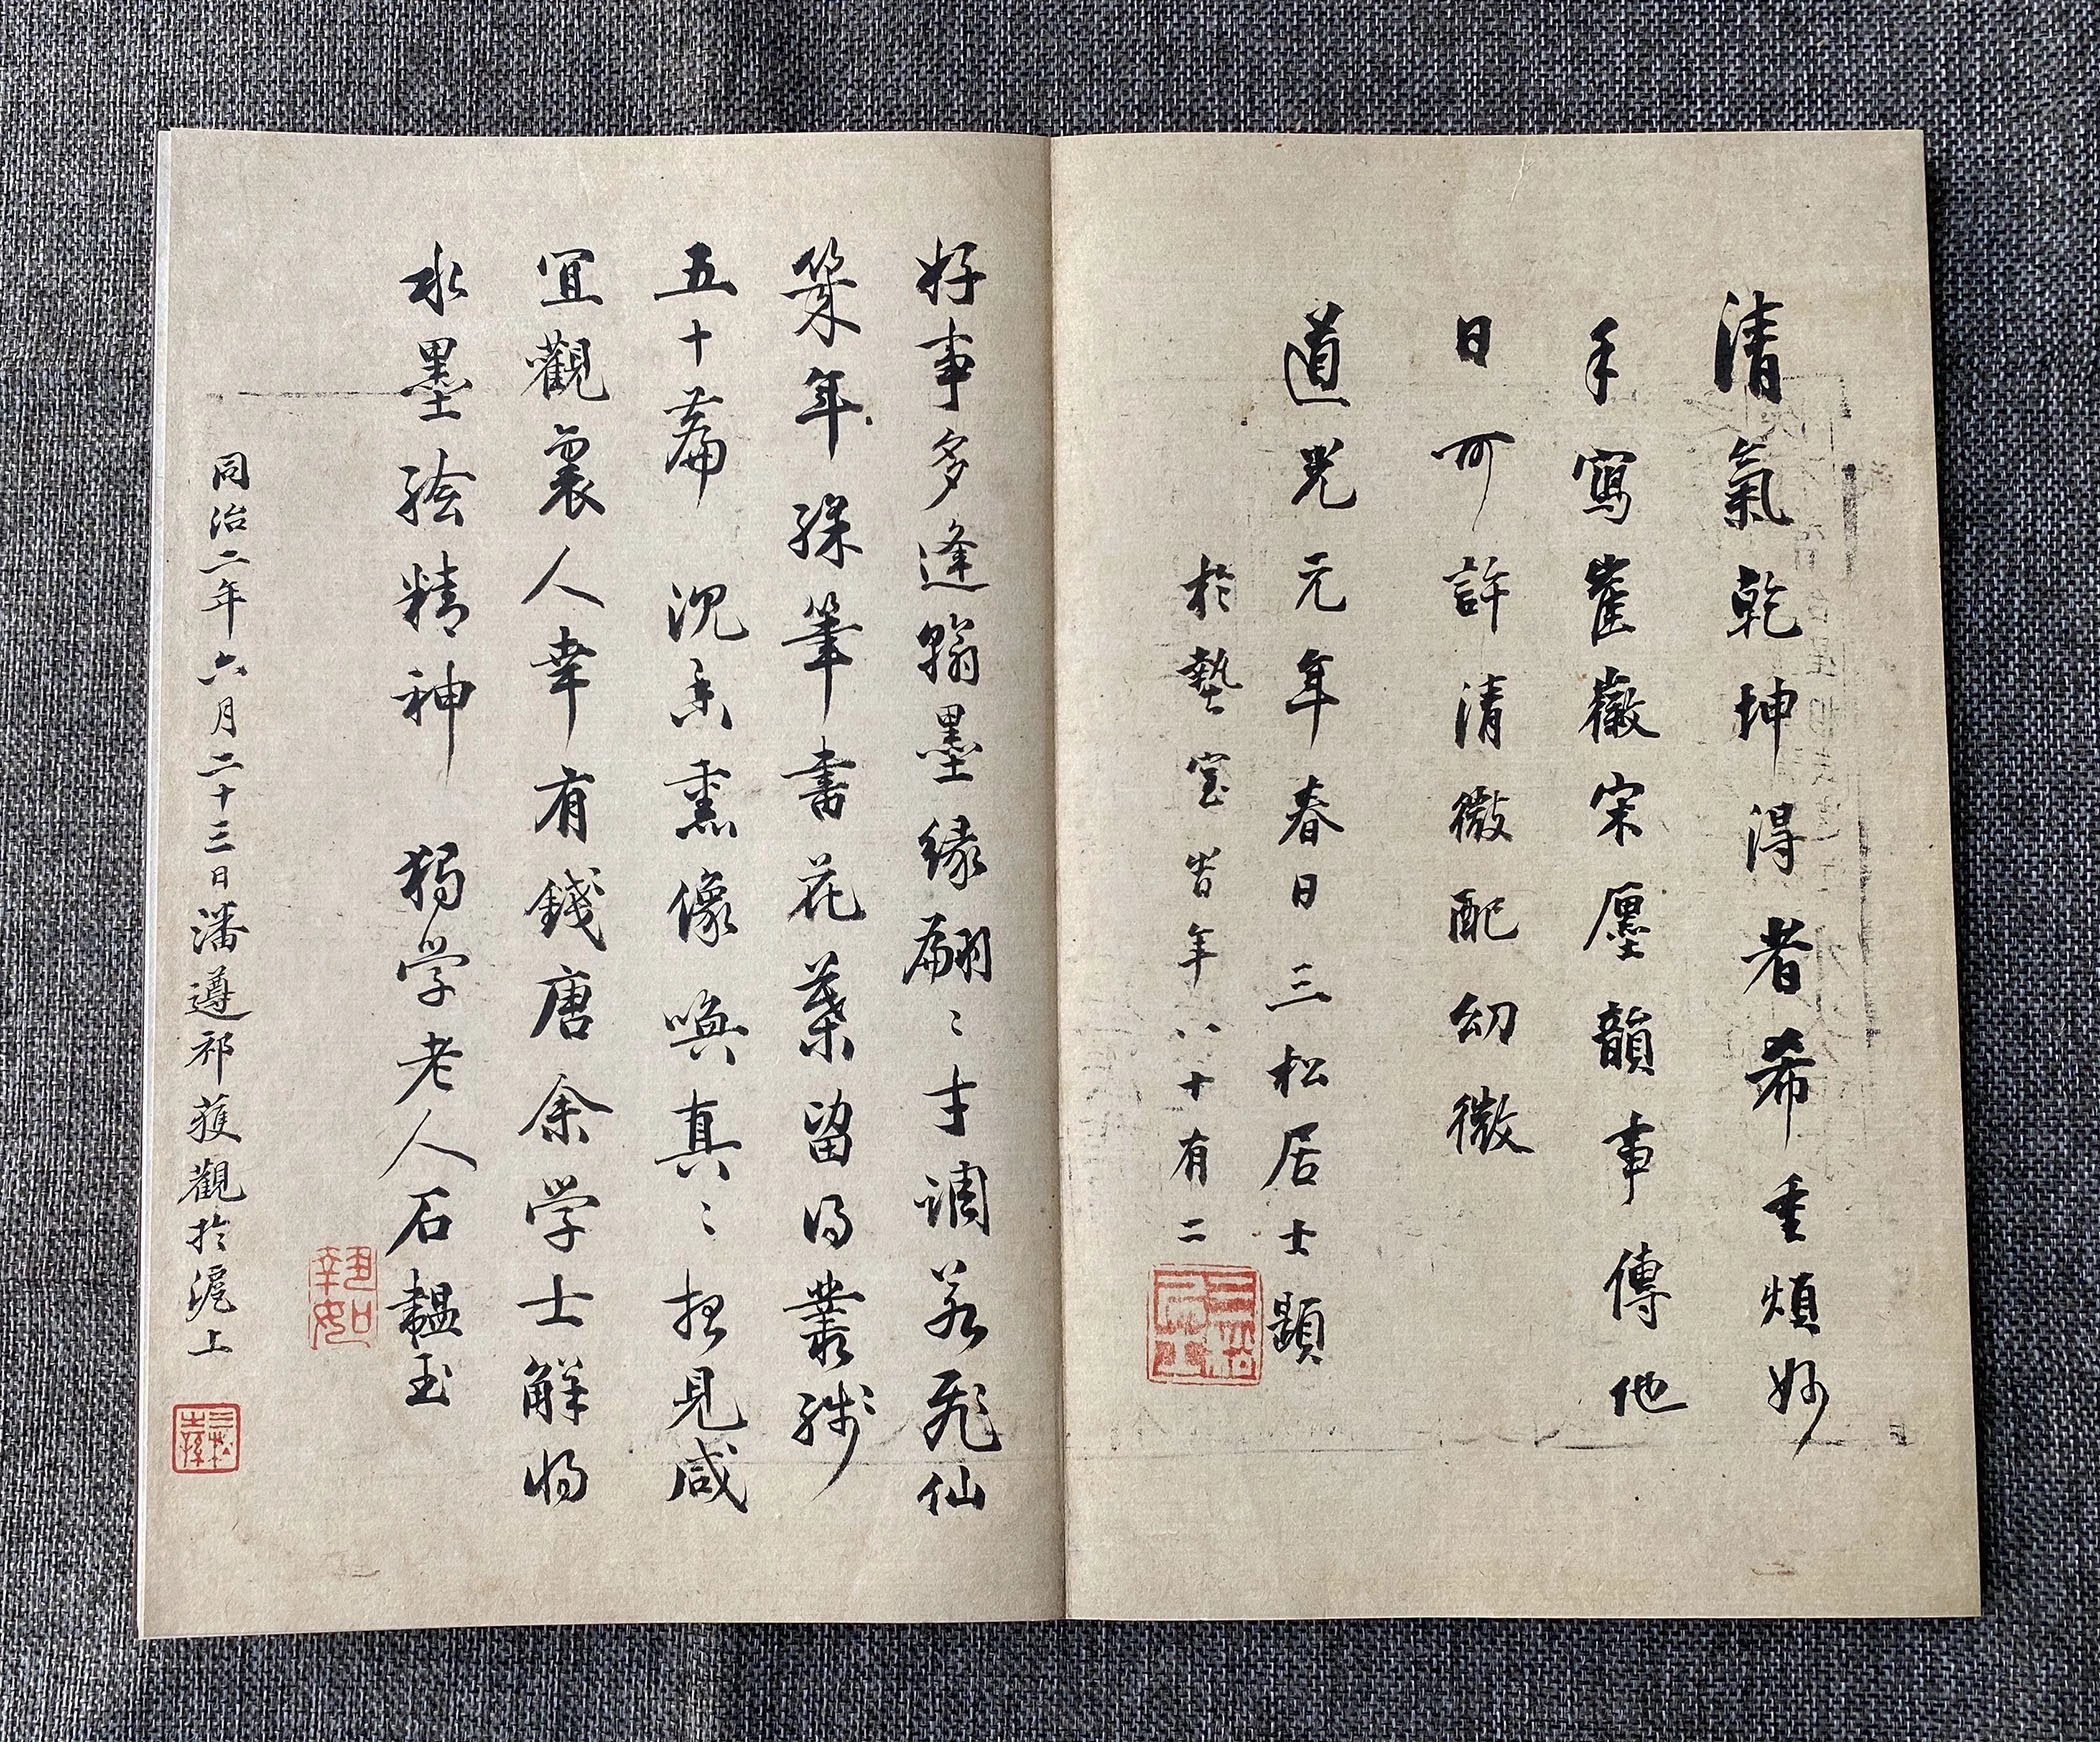 清氣乾坤得者希重煩妙
手寫崔徽宋廛韻事傳他
日可許清徽配幼微
道光元年春日三松居士題
於蓺室峕年八十有二
三松居士
好事多逢翰墨緣翩〻才調若飛仙
築年殊筆書花葉留得叢殘
五十篇 沉香熏像喚真〻披見咸
宜觀裏人幸有錢唐余学士解將
水墨繪精神 獨学老人石韞玉
同治二年六月二十三日潘遵祁獲觀於滬上